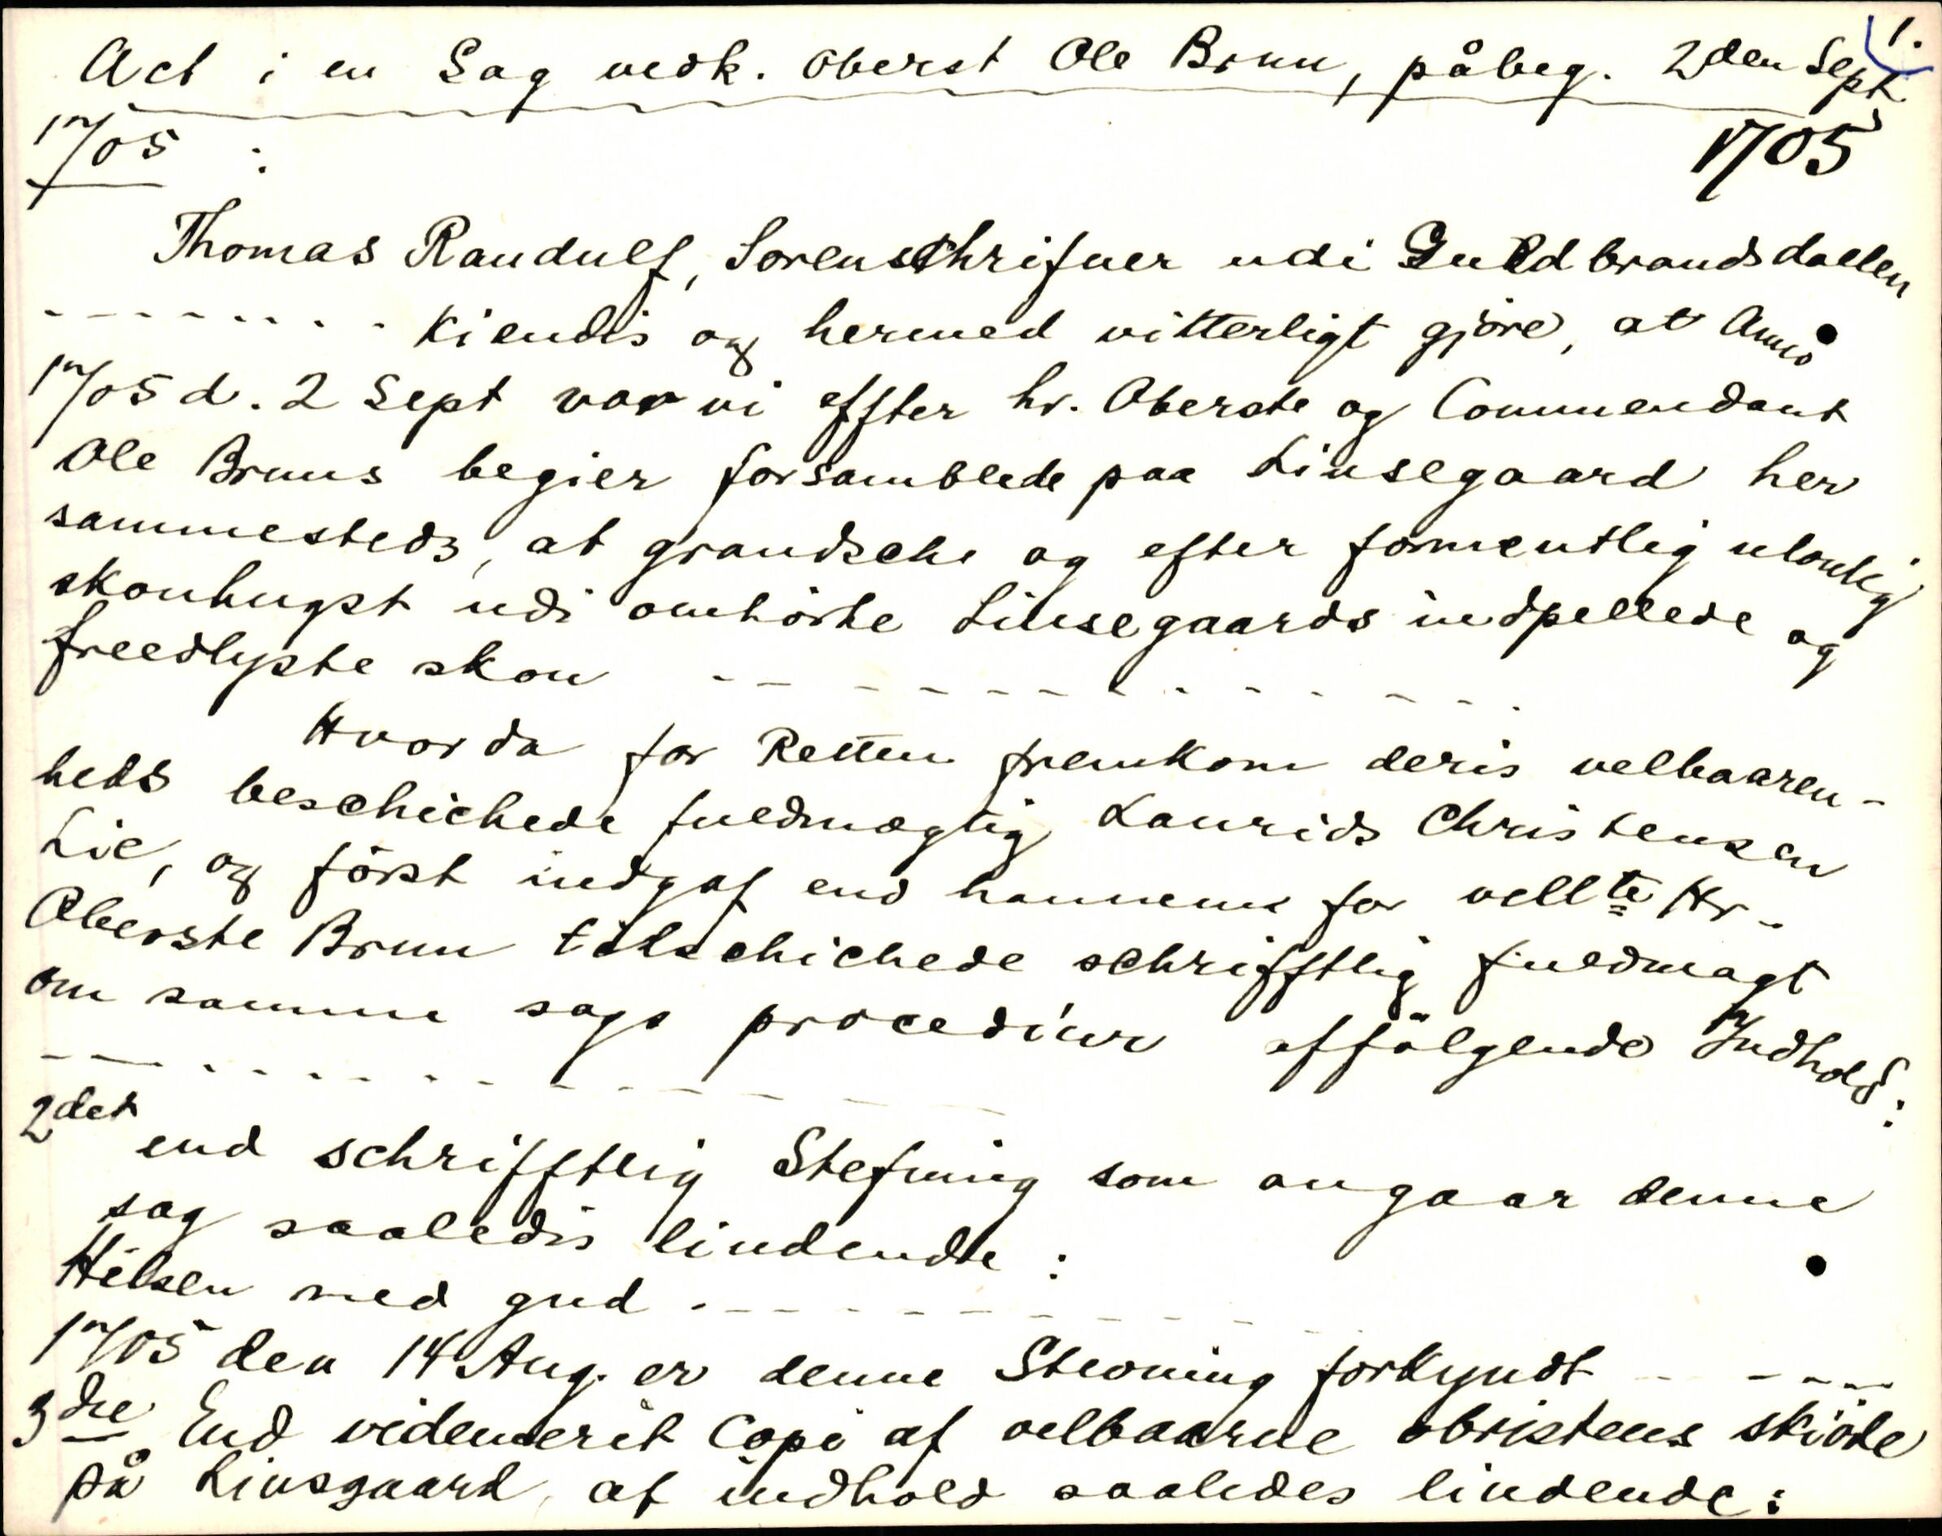 1.
Act i en Sag vedk. Oberst Ole Brun, påbeg. 2den Sept.
1705 :
1705
Thomas Randulf, Sorenschrifuer udi Guldbrandsdallen
- - - - - - - - Kiendis og hermed vitterligt gjøre, at Anno
1705 d. 2 Sept var vi effter hr. Oberste og Commendant
Ole Bruns begier forsamblede paa Linsegaard her
sammesteds, at grandsche og efter formentlig ulovlig
skouhugst udi omhörte Linsegaards indpellede og
freedlyste skou - - - - - - - - - - - -
Hvorda for Retten fremkom deris velbaaren-
heds beschichede fuldmægtig Laurids Christensen
Lie, og först indgaf end hannem for vellte Hr.
Oberste Brun tilschichede schrifftlig fuldmagt
om samme sags procediur affölgende Indhold:
- - - - - - - - - - - - - -
2det end schrifftlig Stefning som angaar denne
sag saaledis liudendte :
Hilsen med gud - - - - - - - - - - -
1705 den 14 Aug. er denne Stevning forkyndt - - - - -
3die End videmerit Copi af velbaarne obristens skiöte
på Linsgaard, af indhold saaledes liudende: